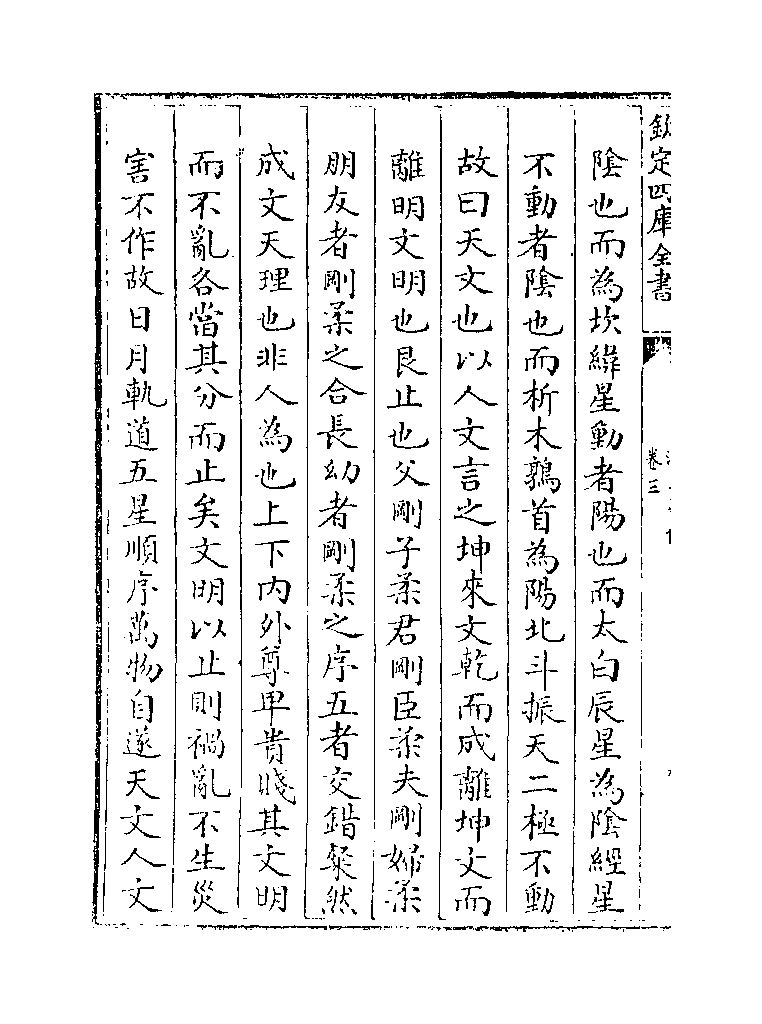 欽定四庫全書
卷三
陰也而為坎緯星動者陽也而太白辰星為陰經星
不動者陰也而析木鶉首為陽北斗振天二極不動
故曰天文也以人文言之坤來文乾而成離坤文而
離明文明也艮止也父剛子柔君剛臣柔夫剛婦柔
朋友者剛柔之合長幼者剛柔之序五者交錯粲然
成文天理也非人為也上下内外尊卑貴賤其文明
而不亂各當其分而止矣文明以止則禍亂不生災
害不作故日月軌道五星順序萬物自遂天文人文